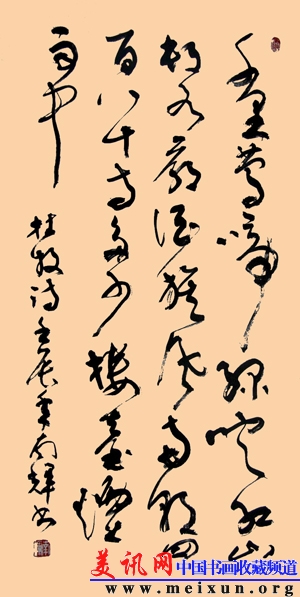 千里莺啼绿映红山
村水郭酒旗风南朝四
百八十寺多少楼台烟
雨中
杜牧诗 辉书
美讯网 中国书画收藏频道
www.meixun.org